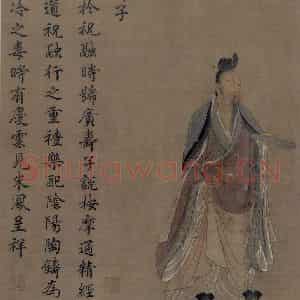 子
扵祝融時號廣壽子說按摩通精經
道祝融行之重種樂配陰陽陶鑄為
冷之毒時有慶雲見朱鳳呈祥
shufawang.CN